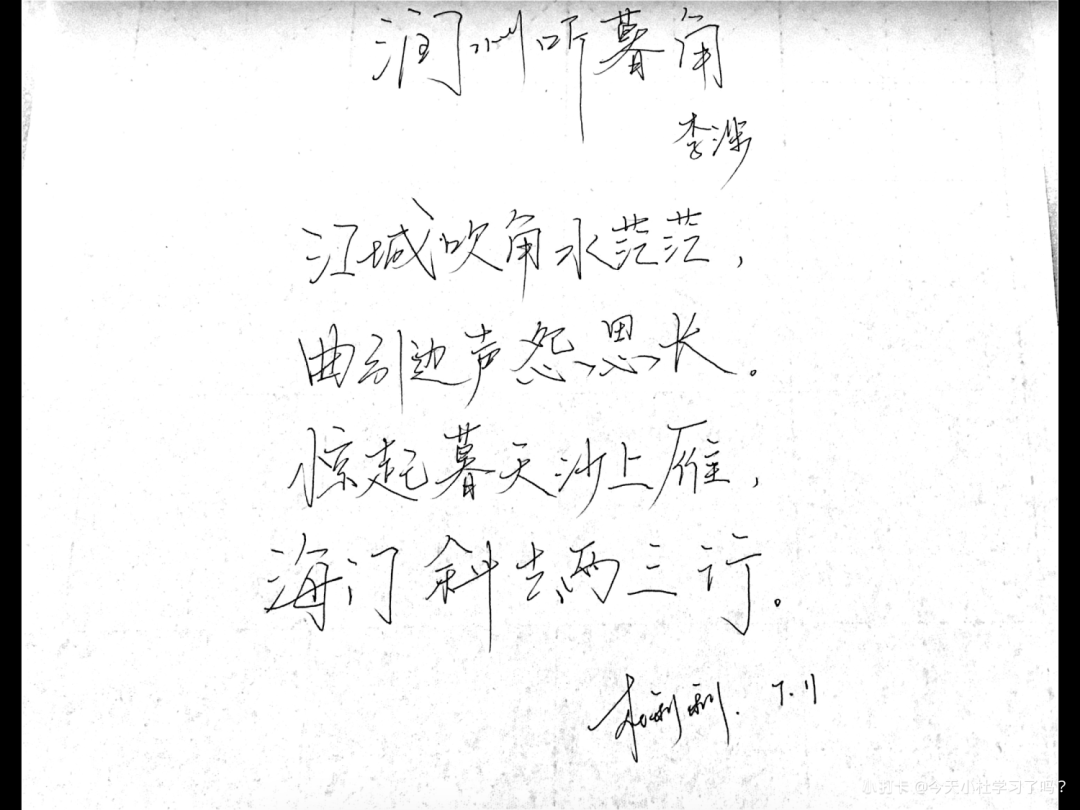 润州听暮角
李涉
江城吹角水茫茫，
曲引边声怨思长。
惊起暮天沙上雁，
海门斜去两三行。
7.11
@今天小社学习了吗？